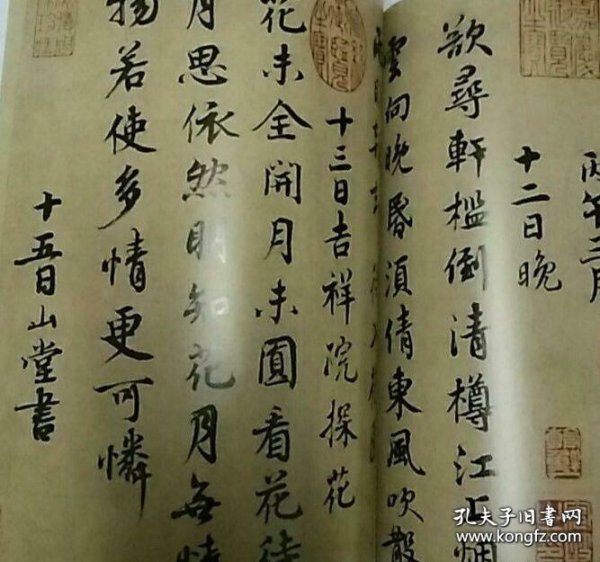 丙午三月
十二日晚
欲尋軒檻倒清樽江上烟
雲向晚昏須倩東風吹散
十三日吉祥院探花
花未全開月未圓看花待
月思依然明知花月無情
物若使多情更可憐
十五日山堂書
孔夫子旧書网
www.kongfz.com